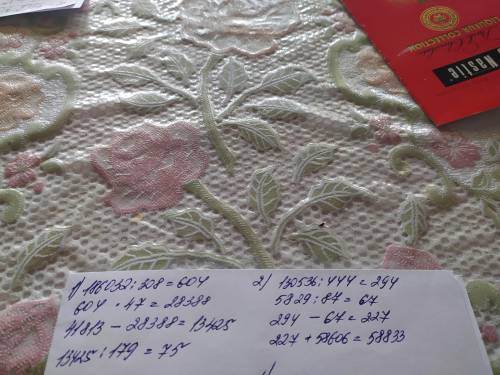 LIQUEUR COLLECTION
Nastle
1) 186032 : 308 = 604
604 · 47 = 28388
41813 - 28388 = 13425
13425 : 179 = 75
2) 130536 : 444 = 294
5829 : 87 = 67
294 - 67 = 227
227 + 58606 = 58833